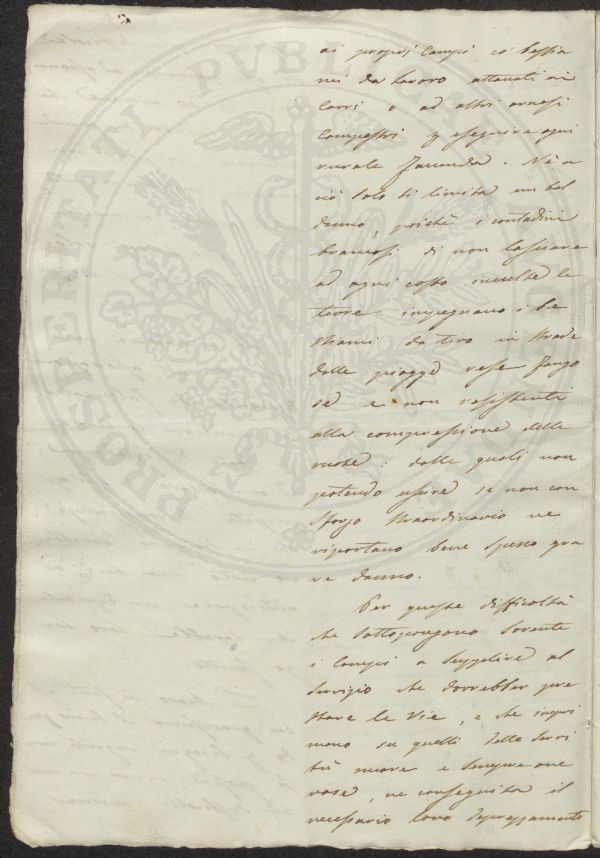 PROSPERITATI PUBLICAE AUGENDAE
ai proprj Campi co' bestia
mi da lavoro attaccati ai
Carri o ad altri arnesi
Campestri p eseguire ogni
rurale facenda. Nè a
ciò solo si limita un tal
danno, poichè i contadini
bramosi di non lasciare
ad ogni costo inculte le
terre impegnano i be
stiami da tiro in strade
dalle piogge rese fango
se e non resistenti
alla compressione delle
ruote: dalle quali non
potendo uscire se non con
sforzo straordinario ne
riportano bene spesso gra
ve danno.
Per queste difficoltà
che sottopongono sovente
i Campi a supplire al
servizio che dovrebber pre
stare le vie, e che impri
mono su quelli delle servi
tù nuove e sempre one
rose, ne conseguita il
necessario loro deprezzamento